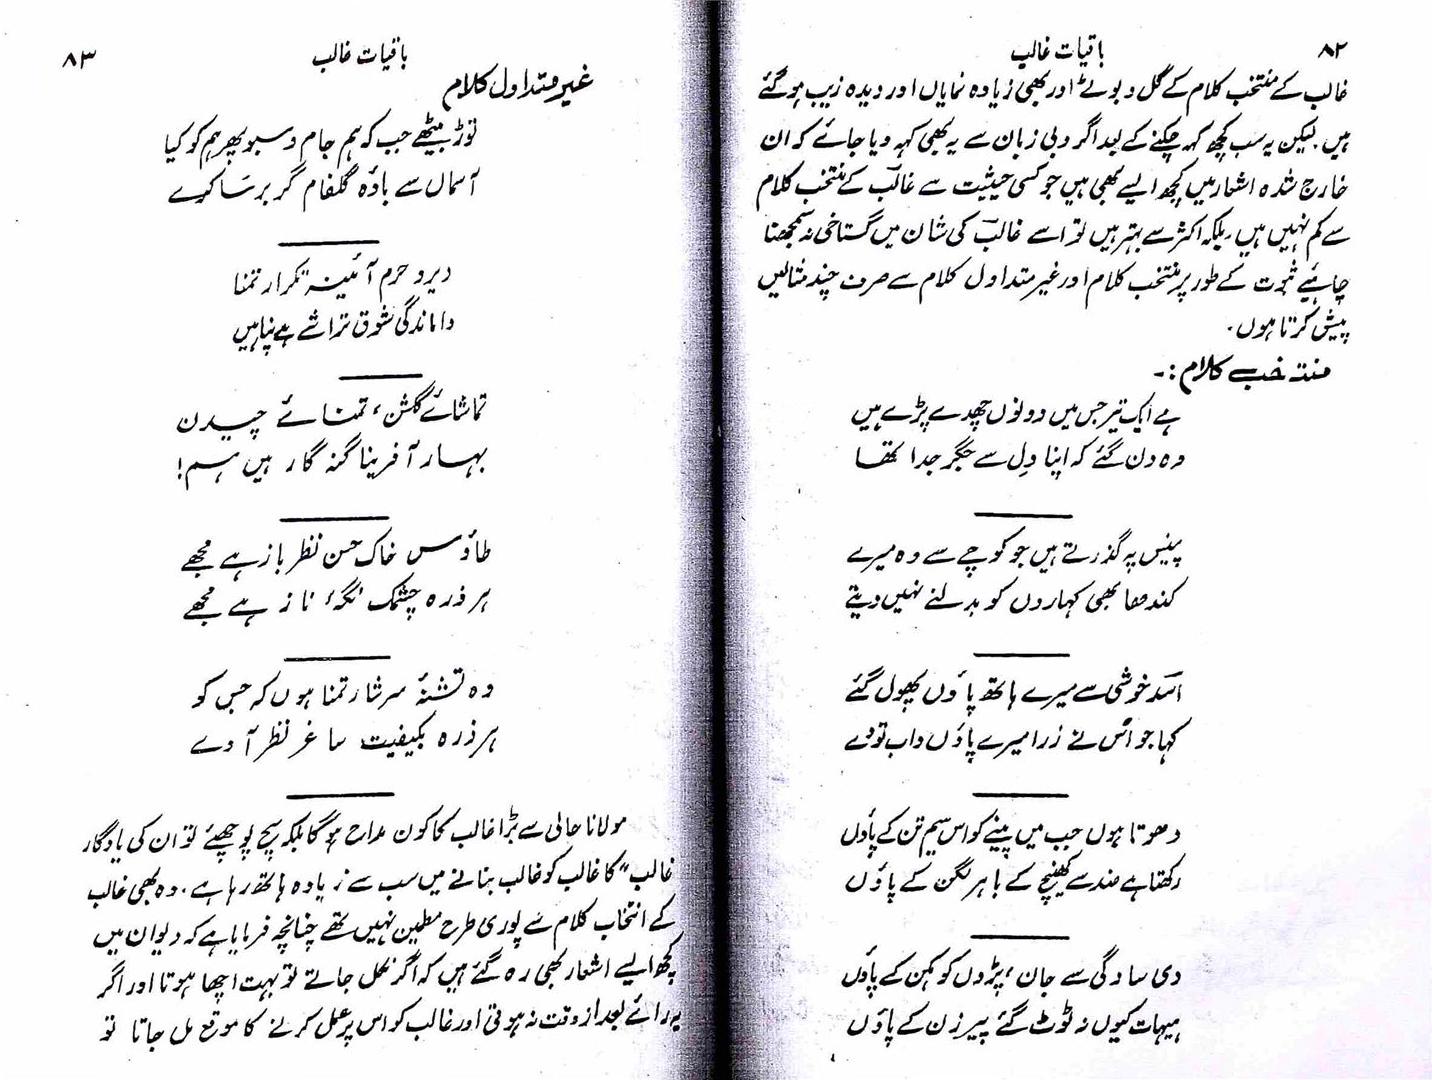 ۸۲
باقیات غالب
غالب کے منتخب کلام کے گل و بوٹے اور بھی زیادہ نمایاں اور دیدہ زیب ہو گئے
ہیں۔ لیکن یہ سب کچھ کہہ چکنے کے بعد اگر دبی زبان سے یہ بھی کہہ دیا جائے کہ ان
خارج شدہ اشعار میں کچھ ایسے بھی ہیں جو کسی حیثیت سے غالبؔ کے منتخب کلام
سے کم نہیں ہیں، بلکہ اکثر سے بہتر ہیں تو اسے غالبؔ کی شان میں گستاخی نہ سمجھنا
چاہئیے ثبوت کے طور پر منتخب کلام اور غیر متداول کلام سے صرف چند مثالیں
پیش کرتا ہوں۔
منتخب کلام :-
ہے ایک تیر جس میں دونوں چھدے پڑے ہیں
وہ دن گئے کہ اپنا دِل سے جگر جدا تھا
پینس پہ گذرتے ہیں جو کوچے سے وہ میرے
کندھا بھی کہاروں کو بدلنے نہیں دیتے
اسؔد خوشی سے میرے ہاتھ پاؤں پھول گئے
کہا جو اُس نے ذرا میرے پاؤں داب تو دے
دھوتا ہوں جب میں پینے کو اس سیم تن کے پاؤں
رکھتا ہے ضد سے کھینچ کے باہر لگن کے پاؤں
دی سادگی سے جان، پڑوں کوہکن کے پاؤں
ہیہات کیوں نہ ٹوٹ گئے پیر زن کے پاؤں
۸۳
باقیات غالب
غیر متداول کلام
توڑ بیٹھے جب کہ ہم جام و سبو پھر ہم کو کیا
آسماں سے بادۂ گلفام گر برسا کرے
دیر و حرم آئینۂ تکرار تمنا
واماندگیٔ شوق تراشے ہے پناہیں
تماشائے گلشن، تمنائے چیدن
بہار آفرینا گنہ گار ہیں ہم!
طاؤس خاک حسن نظر باز ہے مجھے
ہر ذرہ چشمک نگہٴ ناز ہے مجھے
وہ تشنۂ سرشار تمنا ہوں کہ جس کو
ہر ذرہ بکیفیت ساغر نظر آوے
مولانا حالی سے بڑا غالب کا کون مداح ہوگا بلکہ سچ پوچھئے تو ان کی یادگار
غالب" کا غالب کو غالب بنانے میں سب سے زیادہ ہاتھ رہا ہے۔ وہ بھی غالب
کے انتخاب کلام سے پوری طرح مطمین نہیں تھے چنانچہ فرمایا ہے کہ دیوان میں
کچھ ایسے اشعار بھی رہ گئے ہیں کہ اگر نکل جاتے تو بہت اچھا ہوتا اور اگر
یہ رائے بعد از وقت نہ ہوتی اور غالب کو اس پر عمل کرنے کا موقع مل جاتا تو